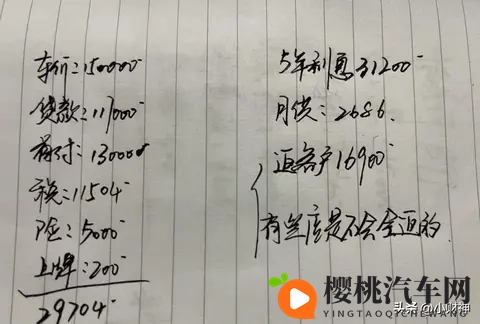 车价:150000
贷款:117000
首付:13000
税:11504
险:5000
上牌:200
29704
5年利息31200
月供:2686.
返客户16900
有些店是不会全返的.
樱桃汽车网
YINGTAOQICHEWANG.COM